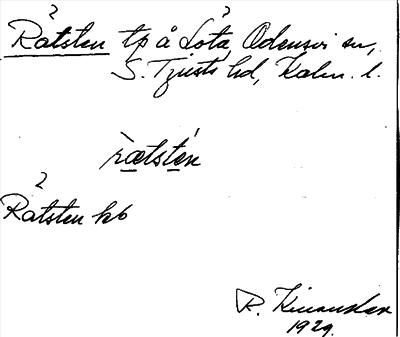 Råtsten tp å Lota, Odensvi sn,
S. Tjusts hd, Kalm. l.
rætstén
Råtsten kb
R.
1929.